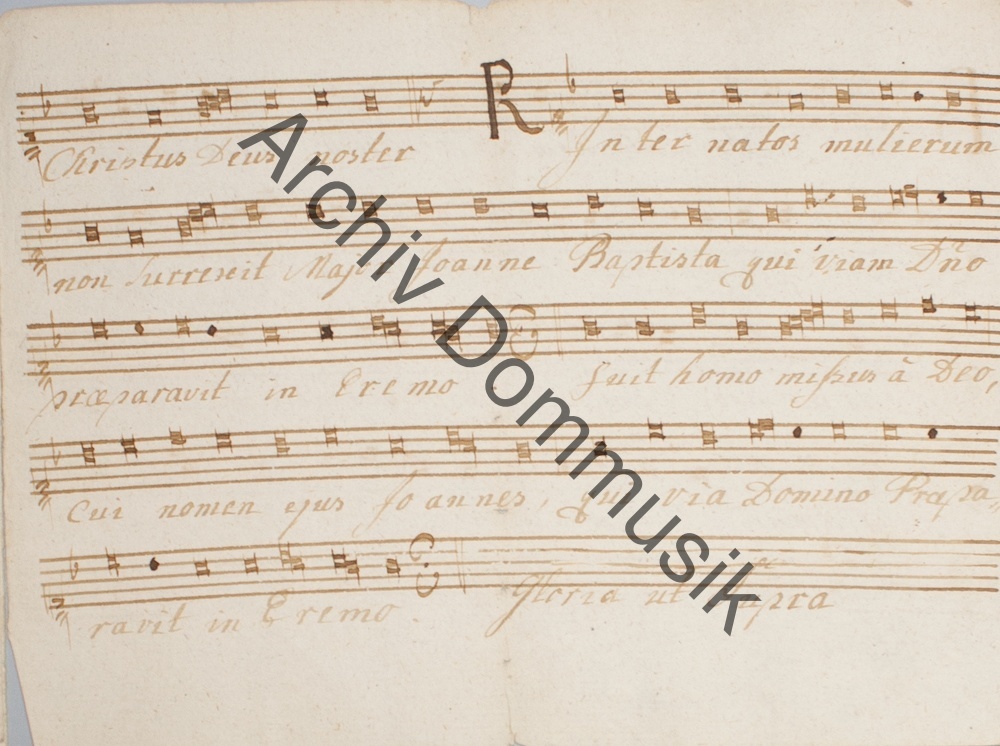 R
Christus Deus noster Inter natos mulierum
non surrexit Major Joanne Baptista qui viam Dño
præparavit in Eremo Fuit homo missus à Deo,
cui nomen ejus Joannes, qui via Domino Præpa,
ravit in Eremo Gloria ut supra
Archiv Dommusik